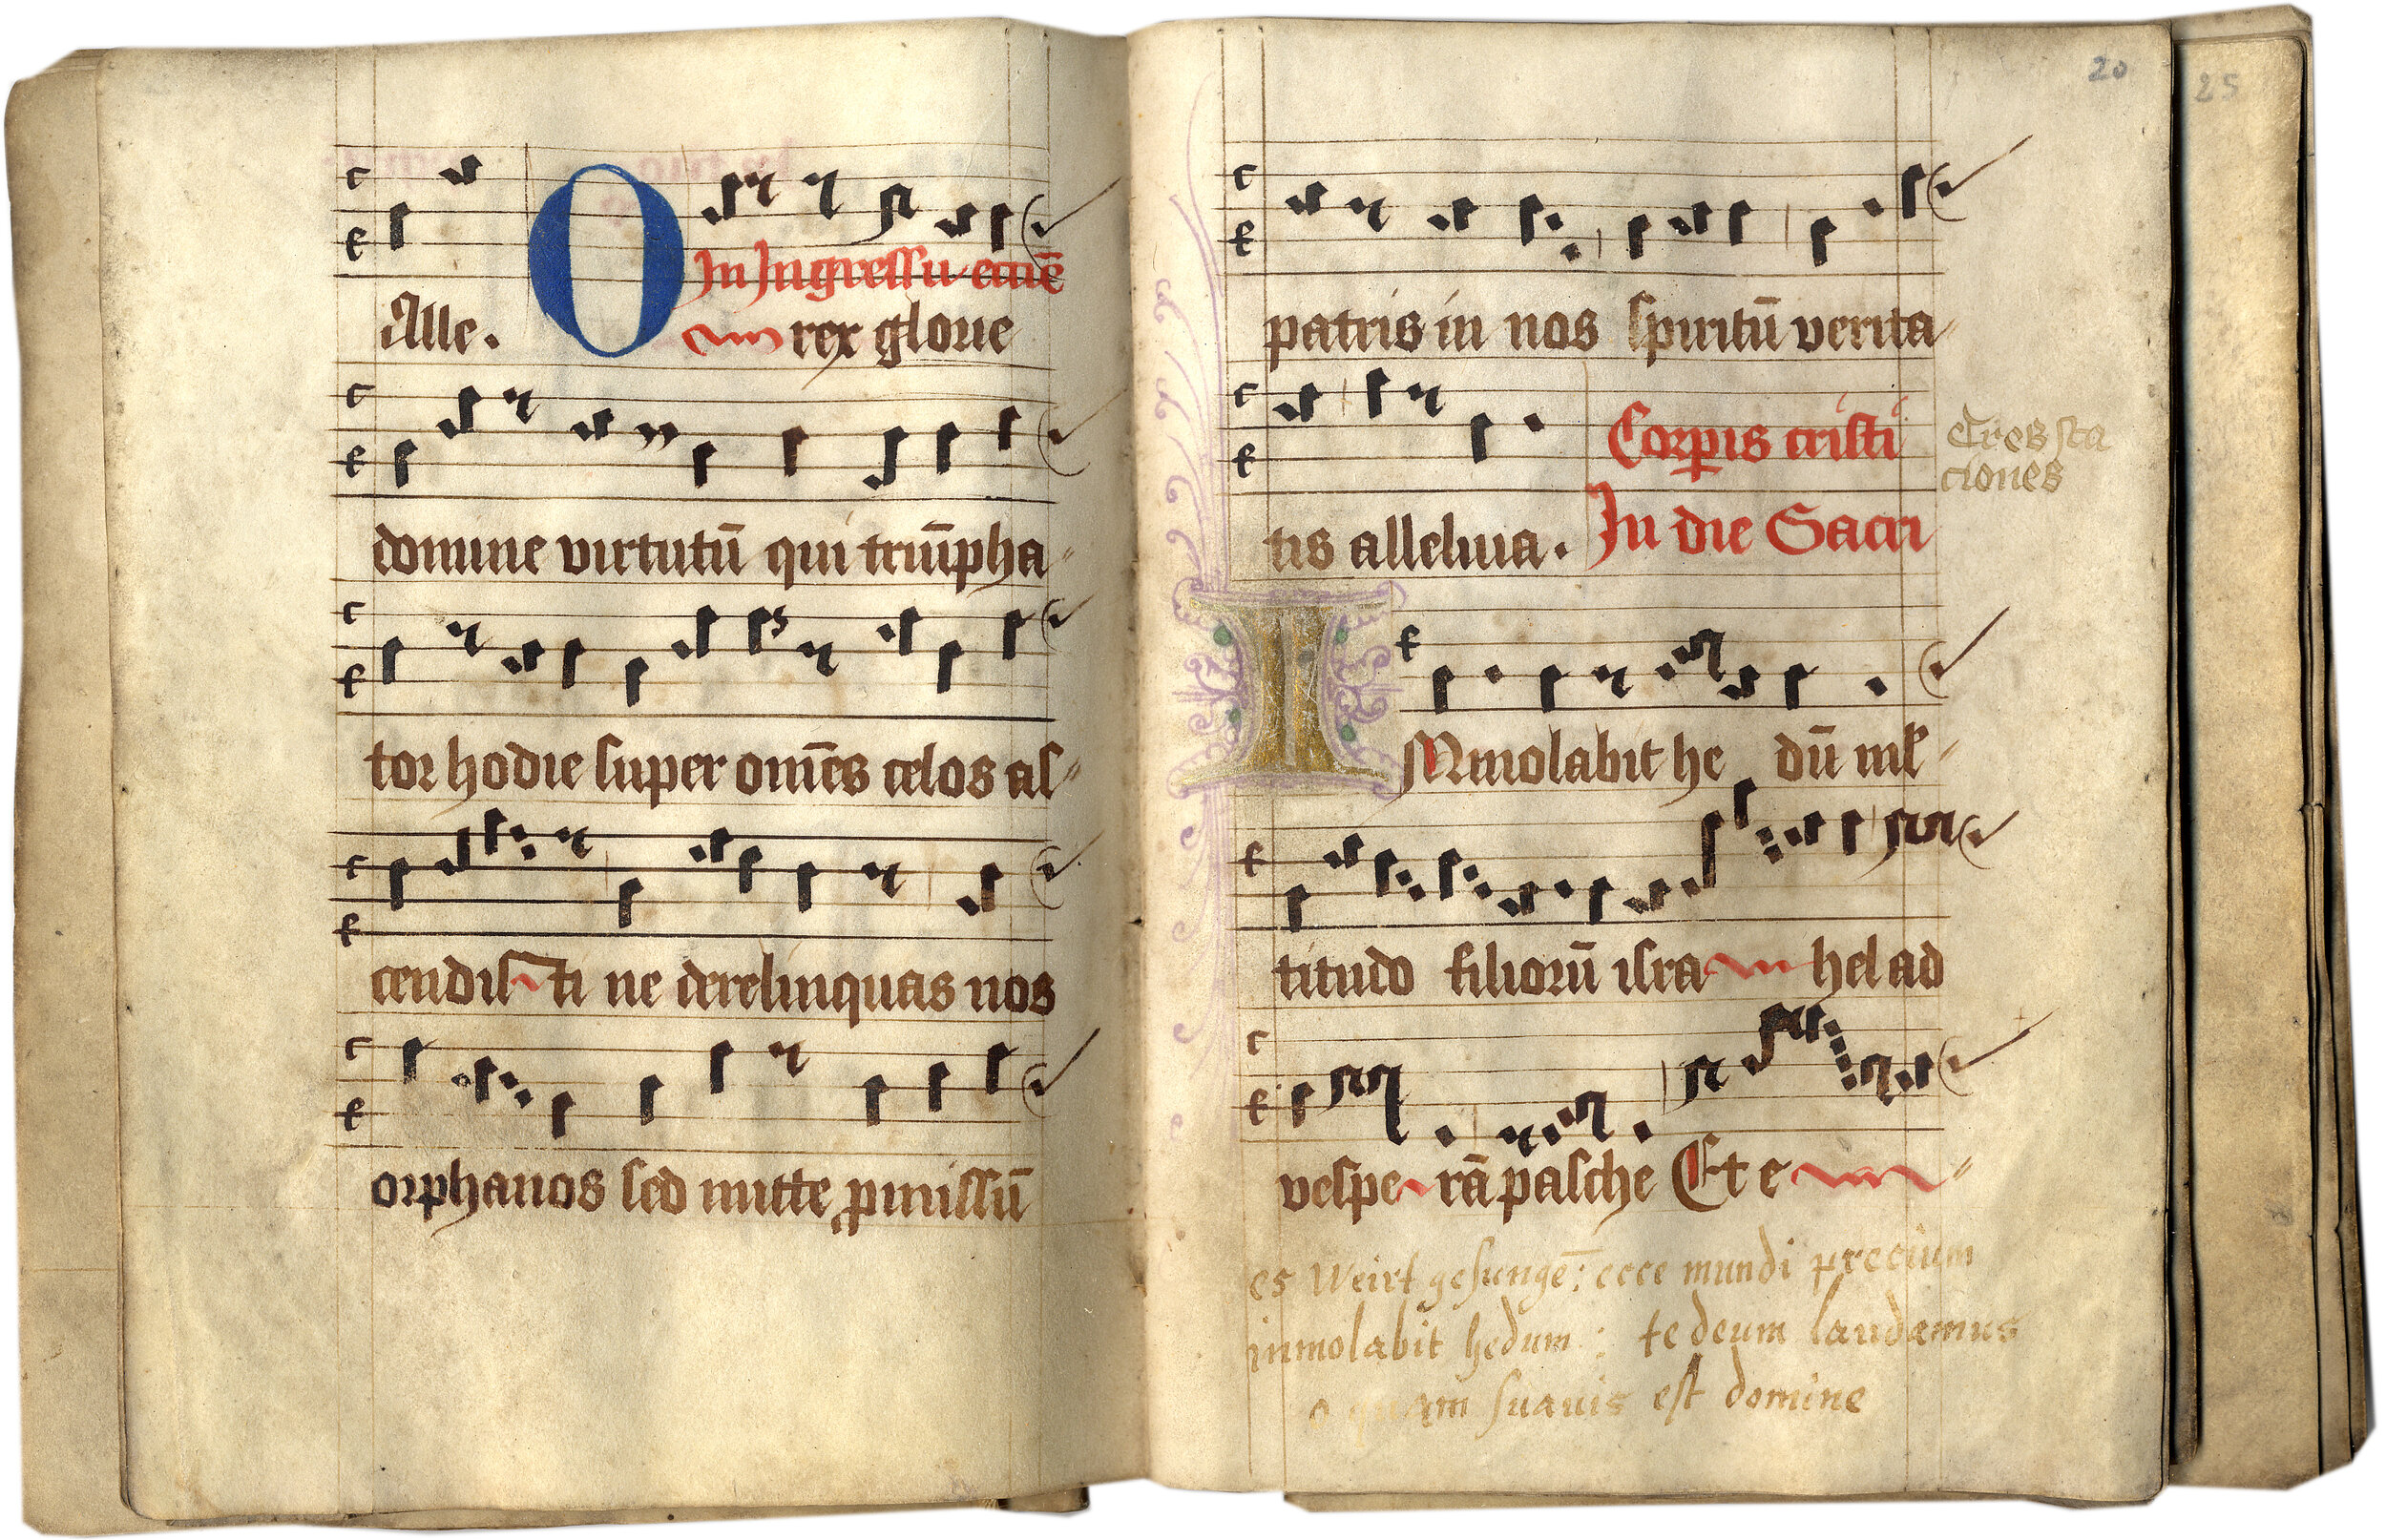 Alle. O In Ingressu eccl̄ē
rex glorie
domine virtutū qui triū̄pha-
tor hodie super om̄es celos as-
cendisti ne derelinquas nos
orphanos sed mitte pmissū
20
25
patris in nos spiritū verita-
tis alleluia. Corpis cristi
Tres sta
ciones
In die Sacri
IMmolabit he dū ml̄-
titudo filiorū isra hel ad
vespe rā pasche Et e
es Weirt gesungē: ecce mundi precium
inmolabit hedum: te deum laudamus
o quam suauis est domine